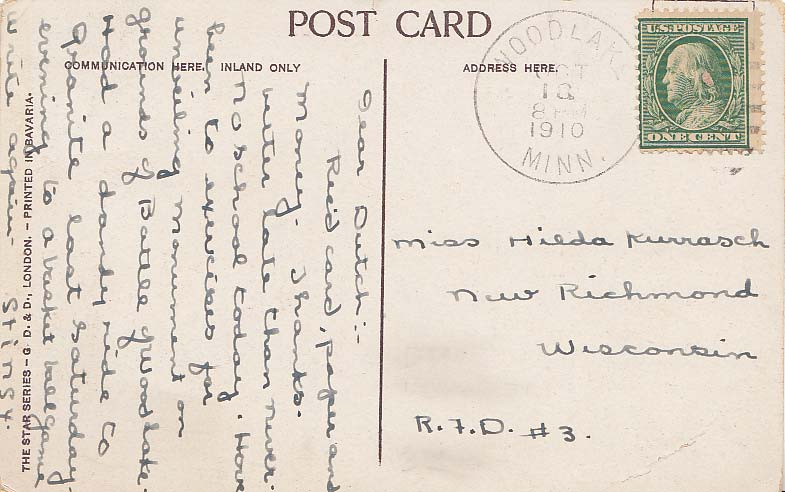 POST CARD
COMMUNICATION HERE. INLAND ONLY
ADDRESS HERE.
WOOD LAKE
OCT
18
1910
MINN.
U.S. POSTAGE
ONE CENT
Dear Dutch:-
Rec'd card, paper and
money. Thanks.
Better late than never.
No school today. Have
been to exercises for
unveiling monument on
grounds of Battle of Wood Lake.
Had a dandy ride to
Granite last Saturday
evening to a basket ball game
Write again. Stingy.
Miss Hilda Kurrasch
New Richmond
Wisconsin
R.F.D. #3.
THE STAR SERIES – G. D. & D., LONDON. – PRINTED IN BAVARIA.